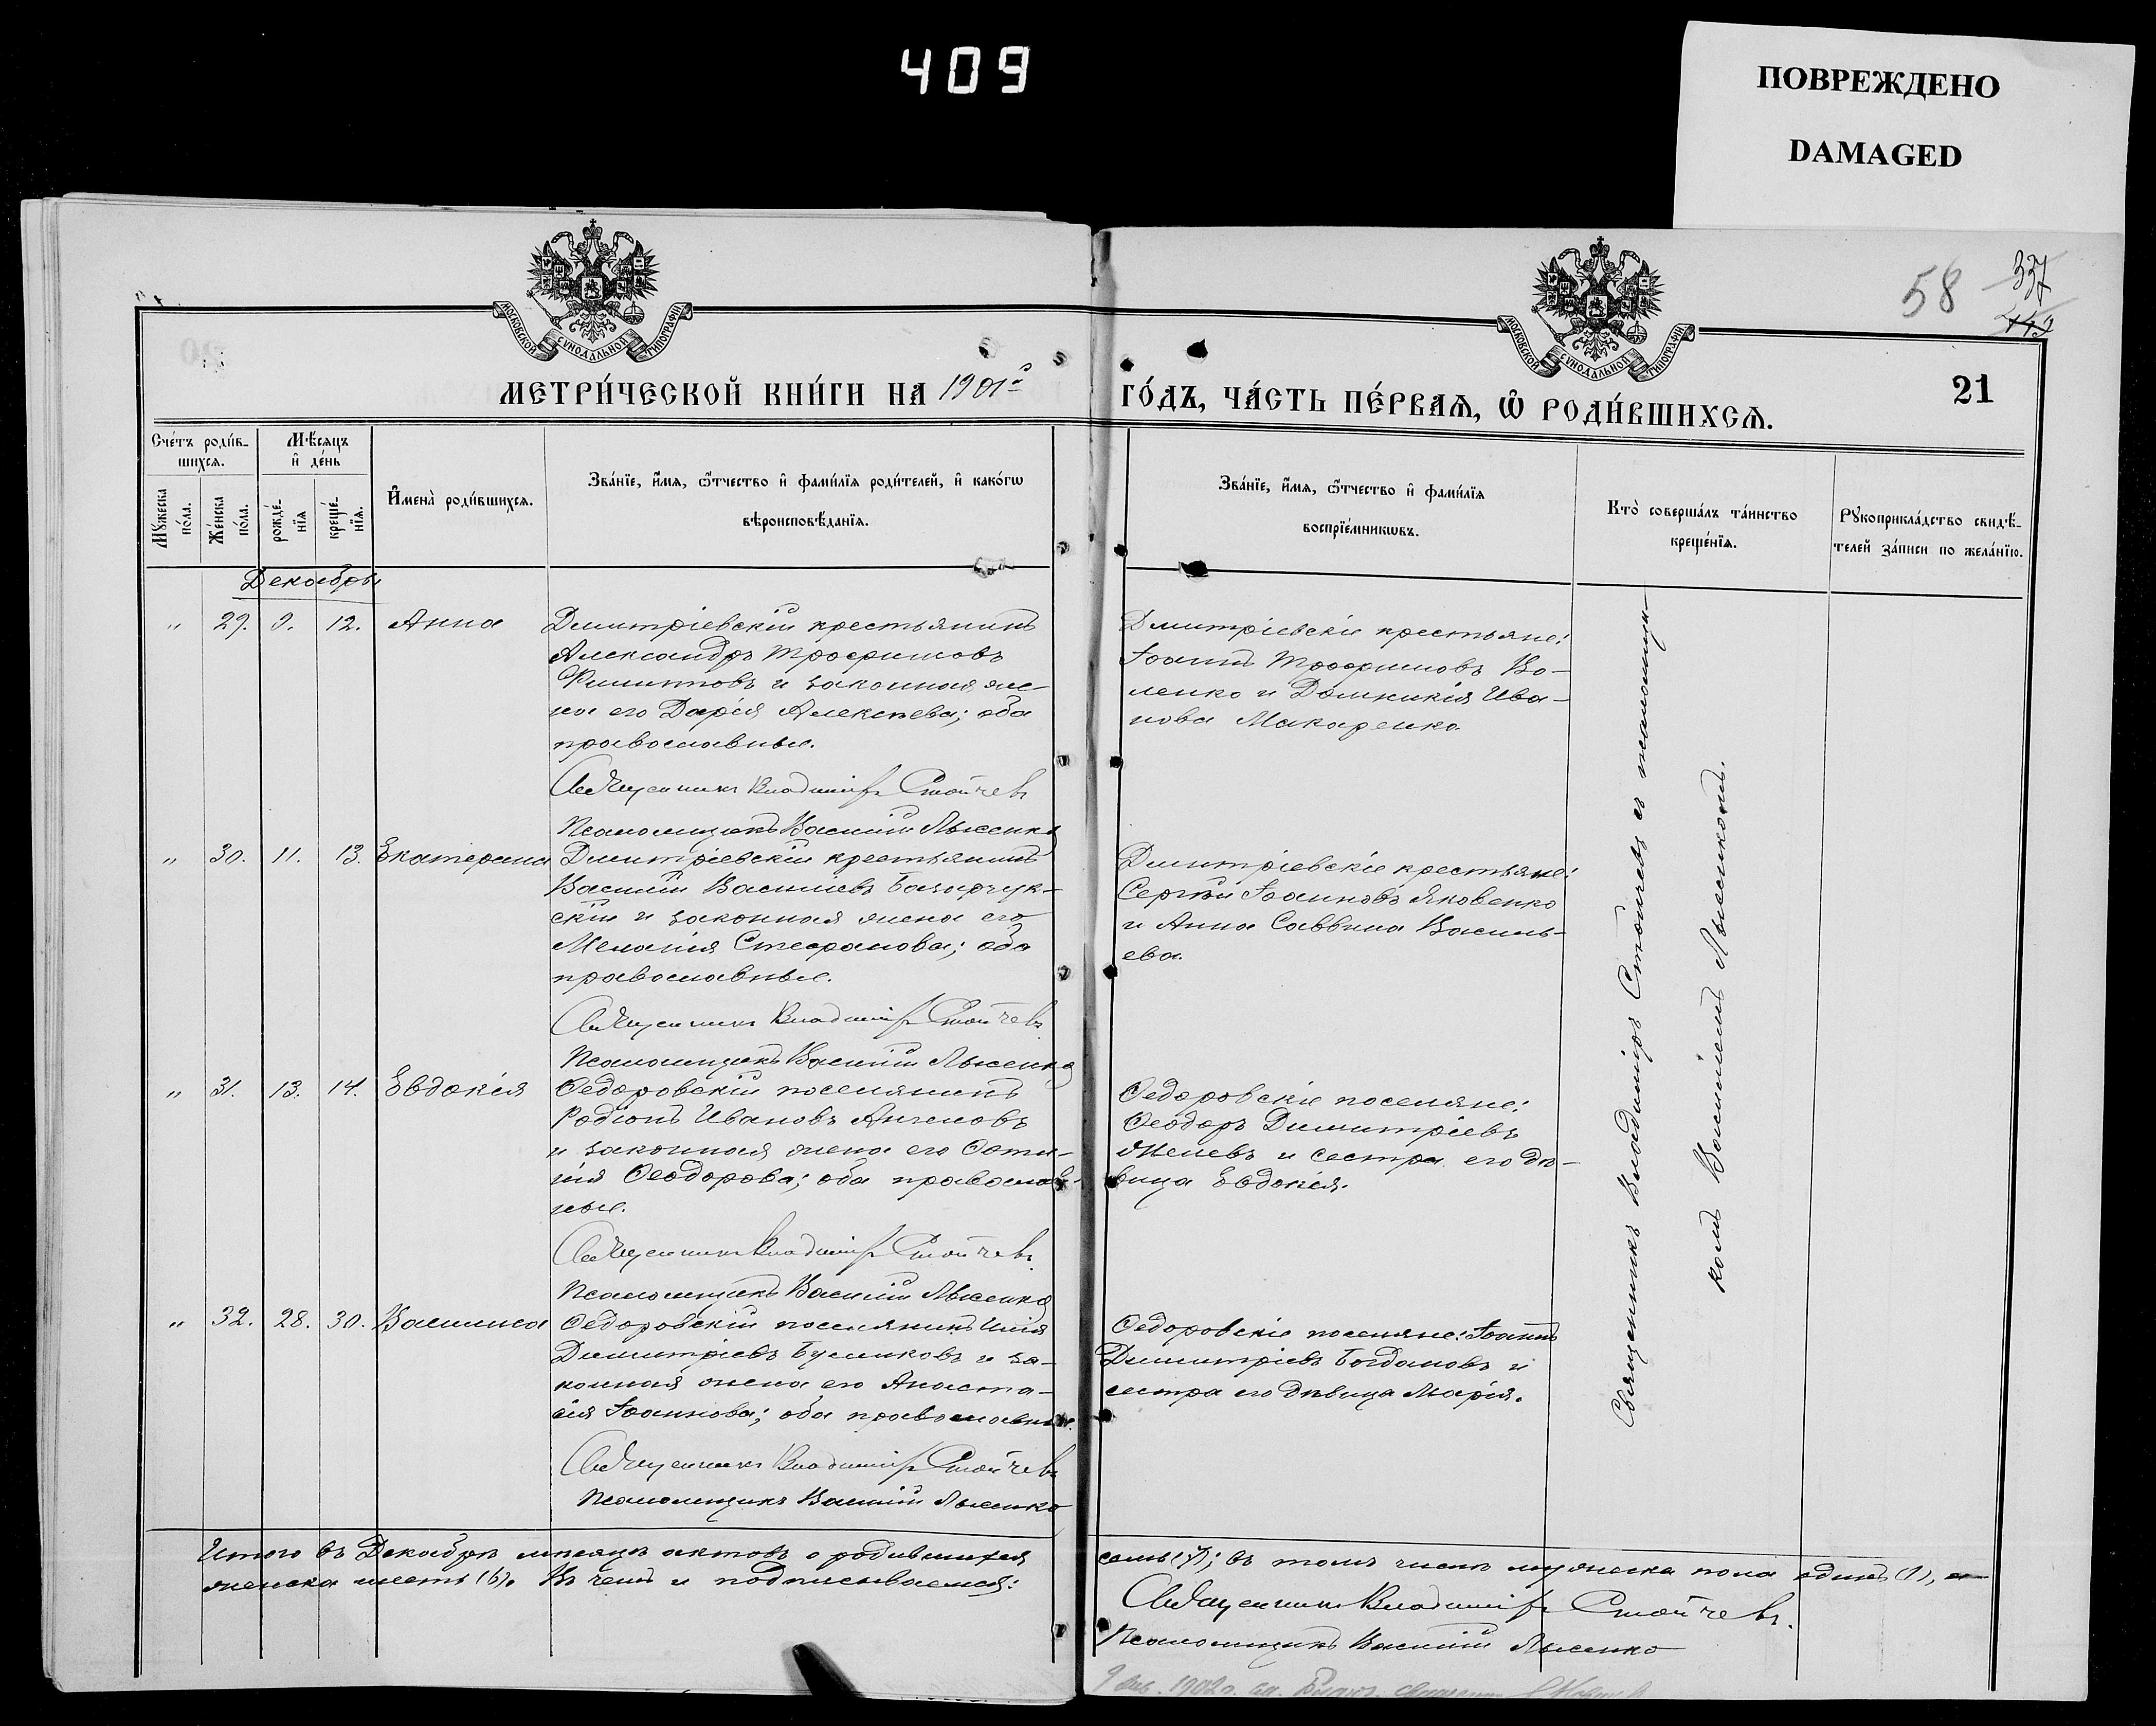 409
ПОВРЕЖДЕНО
DAMAGED
МОСКОВСКОЙ СѴНОДАЛЬНОЙ ТИПОГРАФІИ
МОСКОВСКОЙ СѴНОДАЛЬНОЙ ТИПОГРАФІИ
58
337
МЕТРИ́ЧЕСКОЙ КНИ́ГИ НА 1901й
ГО́ДЪ, ЧА́СТЬ ПЕ́РВАѦ, Ѽ РОДИ́ВШИХСѦ.
21
Сче́тъ роди́в-
шихсѧ.
Мѣ́сѧцъ
и҆ де́нь
Мꙋ́жеска
по́ла.
Же́нска
по́ла.
рожде́-
нїѧ
креще́-
нїѧ.
И҆мена̀ роди́вшихсѧ.
Зва́нїе, и҆́мѧ, ѻ҆́тчество и҆ фами́лїѧ роди́телей, и҆ како́гѡ
вѣроисповѣ́данїѧ.
Зва́нїе, и҆́мѧ, ѻ҆́тчество и҆ фами́лїѧ
воспрїе́мникѡвъ.
Кто̀ соверша́лъ та́инство
креще́нїѧ.
Рꙋкоприкла́дство свидѣ́-
телей за́писи по жела́нїю.
Декабрь
" 29. 9. 12. Анна
Димитріевскій крестьянинъ
Александръ Трофимовъ
и законная же-
на его Дарія Алексѣева; оба
православные.
Священникъ Владиміръ Стойчевъ
Псаломщикъ Василій Лысенко
Димитріевскіе крестьяне:
Іоаннъ Трофимовъ Ко-
ленко и Домникія Ива-
нова Макаренко.
" 30. 11. 13. Екатерина
Димитріевскій крестьянинъ
Василій Васильевъ
скій и законная жена его
Меланія Стефанова; оба
православные.
Священникъ Владиміръ Стойчевъ
Псаломщикъ Василій Лысенко
Димитріевскіе крестьяне:
Сергѣй Іоанновъ Яковенко
и Анна Саввина Василь-
ева.
" 31. 13. 14. Евдокія
Ѳедоровскій поселянинъ
Родіонъ Ивановъ Ангеловъ
и законная жена его Фоти-
нія Ѳеодорова; оба православ-
ные.
Священникъ Владиміръ Стойчевъ
Псаломщикъ Василій Лысенко
Ѳедоровскіе поселяне:
Ѳеодоръ Димитріевъ
Желевъ и сестра его дѣ-
вица Евдокія.
" 32. 28. 30. Василиса
Ѳедоровскій поселянинъ Илія
Димитріевъ Бумиковъ и за-
конная жена его Анаста-
сія Іоаннова; оба православные.
Священникъ Владиміръ Стойчевъ
Псаломщикъ Василій Лысенко
Ѳедоровскіе поселяне: Іоаннъ
Димитріевъ Богдановъ и
сестра его дѣвица Марія.
Священникъ Владиміръ Стойчевъ съ псаломщи-
комъ Василіемъ Лысенкомъ.
Итого въ Декабрѣ мѣсяцѣ актовъ о родившихся
семь (7); въ томъ числѣ мужеска пола одинъ (1), а
женска шесть (6). Въ чемъ и подписываемся:
Священникъ Владиміръ Стойчевъ.
Псаломщикъ Василій Лысенко
1902 г.